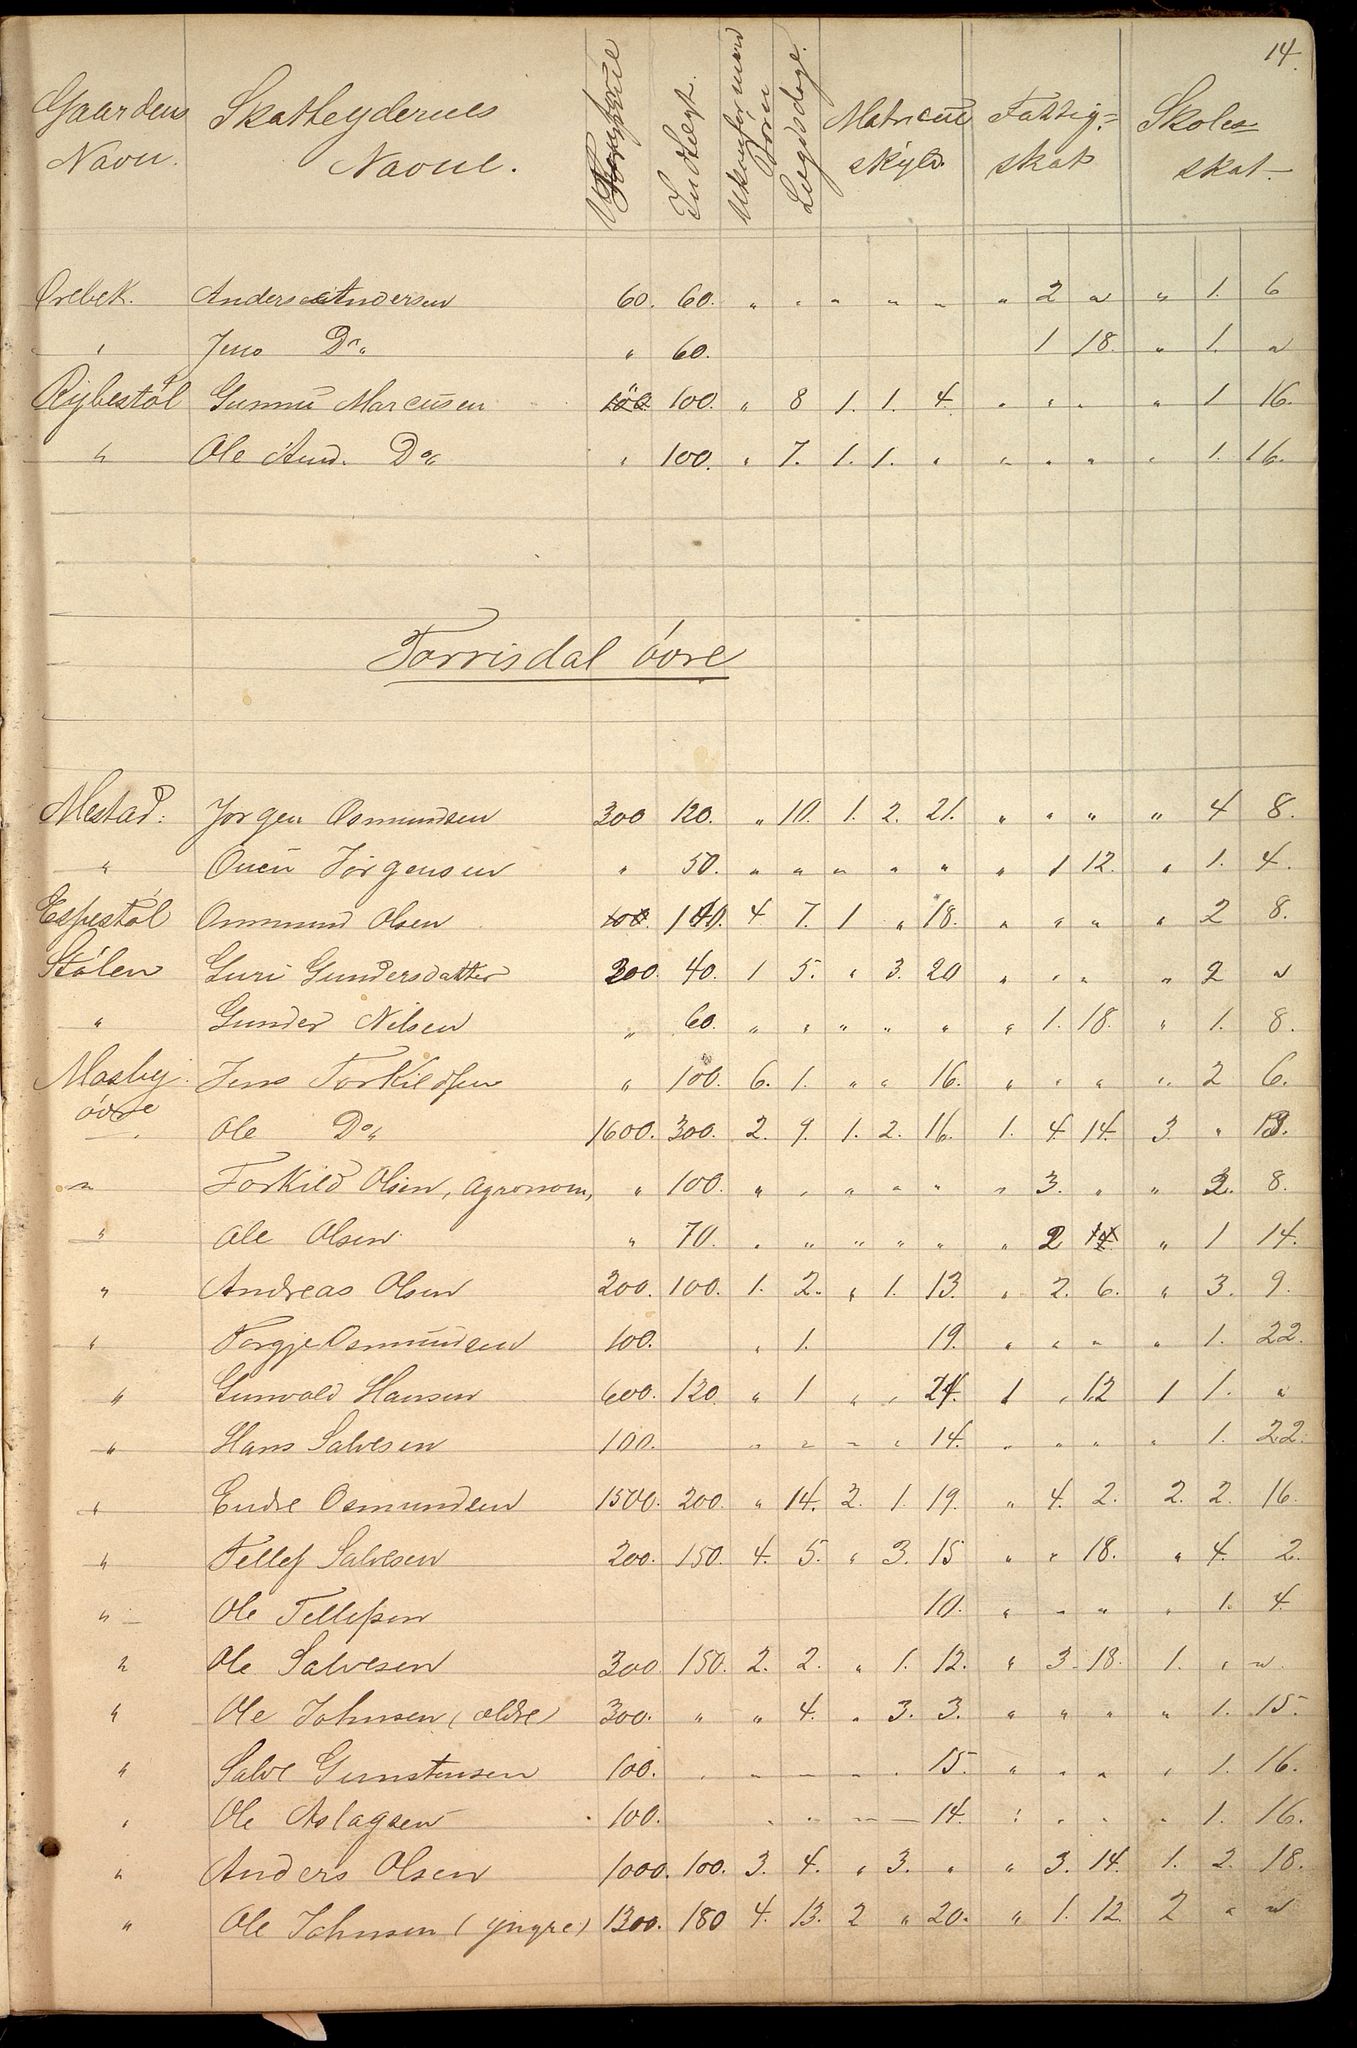 14.
Gaardens Navn. Skatteydernes Navne. Formue Indtægt. Ukonfirmerd Børn Lægdsdage. Matricul skyld. Fattig= skat Skole= skat
Orebek. Anders Andersen 60. 60. " " " " " " 2 " " 1. 6
" Jens Do " 60. 1 18. " 1. "
Rybestøl Gunnu Marcusen 100 100. " 8 1. 1. 4. " " " " 1 16.
" Ole And. Do " 100. " 7. 1. 1. " " " " " 1. 16.
Torrisdal övre
Mestad: Jørgen Osmundsen 300 120. " 10. 1. 2. 21. " " " " 4 8.
" Oueu Jörgensen " 50. " " " " " " 1 12. " 1. 4.
Espestøl Ommund Olsen 100. 140. 4 7. 1 " 18. " " " " 2 8.
Stølen Guri Gundersdatter 300. 40. 1 5. " 3. 20 " " " " 2 "
" Gunder Nilsen " 60. " " " " " " 1. 18. " 1. 8.
Mosby övre Jens Torkildsen " 100. 6. 1. " " 16. " " " " 2 6.
" Ole Do 1600. 300. 2. 9. 1. 2. 16. 1. 4. 14. 3. " 13.
" Torkild Olsen, agronom, " 100. " " " " " " 3. " " 2. 8.
" Ole Olsen " 70. " " " " " " 2 14 " 1 14.
" Andreas Olsen 200. 100. 1. 2. " 1. 13. " 2. 6. " 3. 9.
" Torgje Osmundsen 100. " 1. 19. " " " " 1. 22.
" Gunvald Hansen 600. 120. " 1 " " 24. 1 " 12 1 1. "
" Hans Salvesen 100. " " " " 14. " " " " 1. 22.
" Endre Osmundsen 1500. 200. " 14. 2. 1. 19. " 4. 2. 2. 2. 16.
" Tellef Salvesen 200. 150. 4. 5. " 3. 15 " " 18. " 4. 2.
" Ole Tellefsen 10. " " " " 1. 4.
" Ole Salvesen 300. 150. 2. 2. " 1. 12. " 3. 18. 1. " "
" Ole Johnsen (ældre) 300. " " 4. " 3. 3. " " " " 1. 15.
" Salve Gunstensen 100. " " " " " 15. " " " " 1. 16.
" Ole Aslagsen 100. " " " " 14. " " " " 1. 16.
" Anders Olsen 1000. 100. 3. 4. " 3. " " 3. 14. 1. 2. 18.
" Ole Johnsen (yngre) 1300. 180 4. 13. 2 " 20. " 1. 12. 2 " "